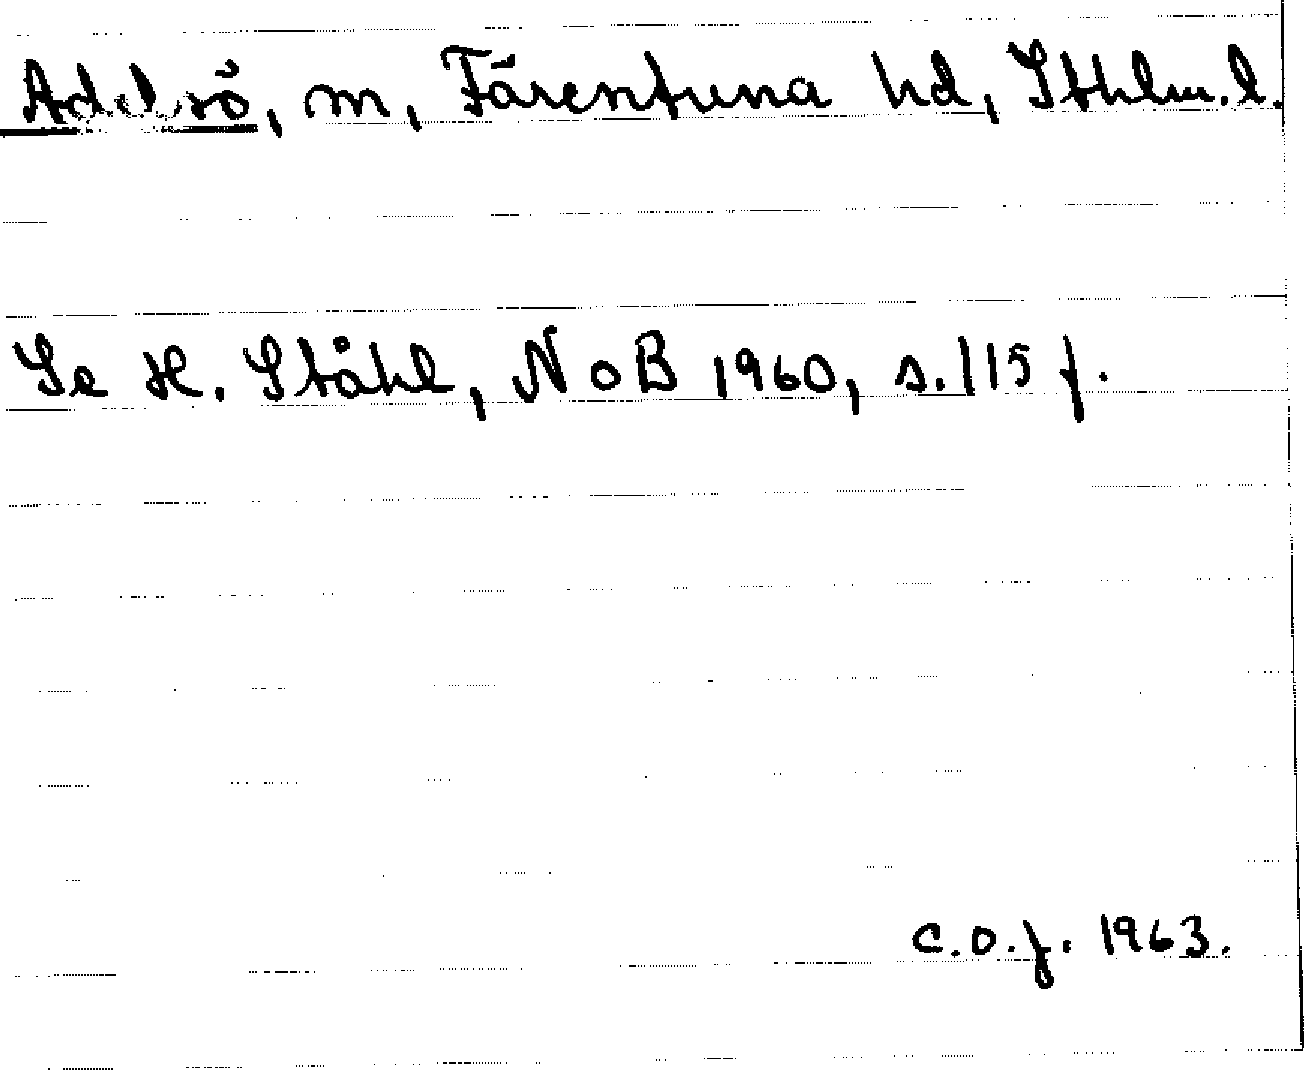 Adelsö, m, Färentuna hd, Sthlm. l.
Se H. Ståhl, NoB 1960, s. 115 f.
C.O.J. 1963.